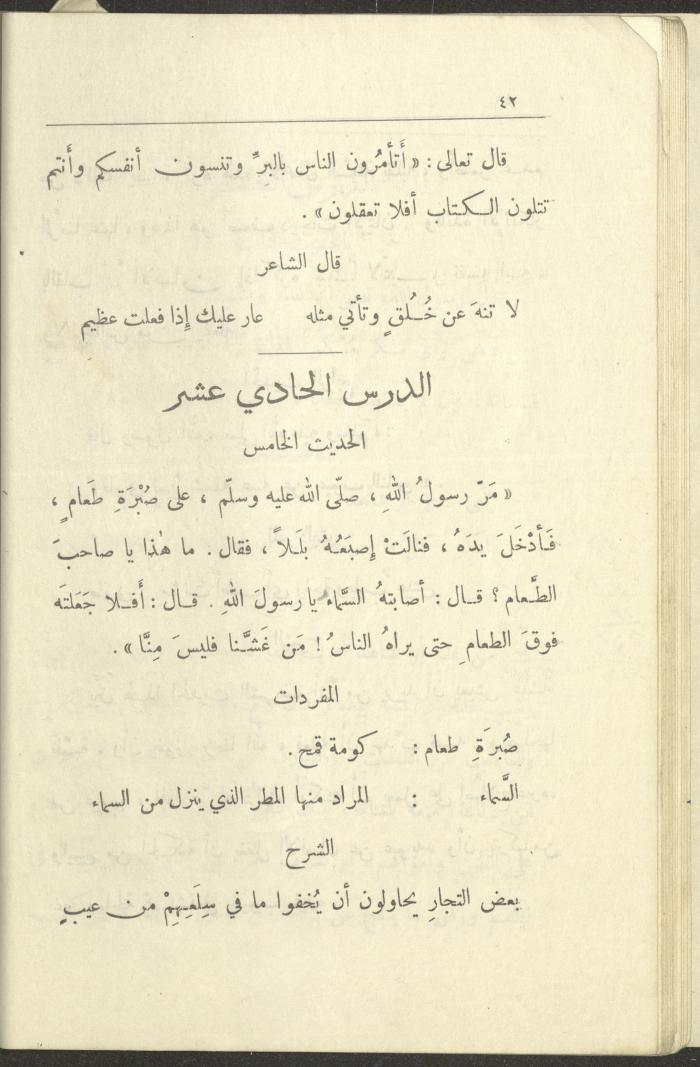 ٤٢
قال تعالى : « أَتأمُرون الناس بالبِرِّ وتنسون أنفسكم وأَنتم
تتلون الكتاب أفلا تعقلون » .
قال الشاعر
لا تنهَ عن خُلُقٍ وتأتي مثله عار عليك إِذا فعلت عظيم
الدرس الحادي عشر
الحديث الخامس
« مَرّ رسولُ اللهِ ، صلّى الله عليه وسلّم ، على صُبْرَةِ طَعامٍ ،
فَأَدْخَلَ يدَهُ ، فنالَتْ إِصبَعُهُ بلَلاً ، فقال . ما هٰذا يا صاحبَ
الطَّعام ؟ قال : أصابتهُ السَّماء يا رسولَ اللهِ . قال : أَفلا جَعَلتَه
فوقَ الطعامِ حتى يراهُ الناسُ ! مَن غَشَّنا فليسَ مِنَّا » .
المفردات
صُبرَةِ طعام : كومة قمح .
السَّماء : المراد منها المطر الذي ينزل من السماء
الشرح
بعض التجارِ يحاولون أن يُخفوا ما في سِلَعِهِمْ من عيبٍ